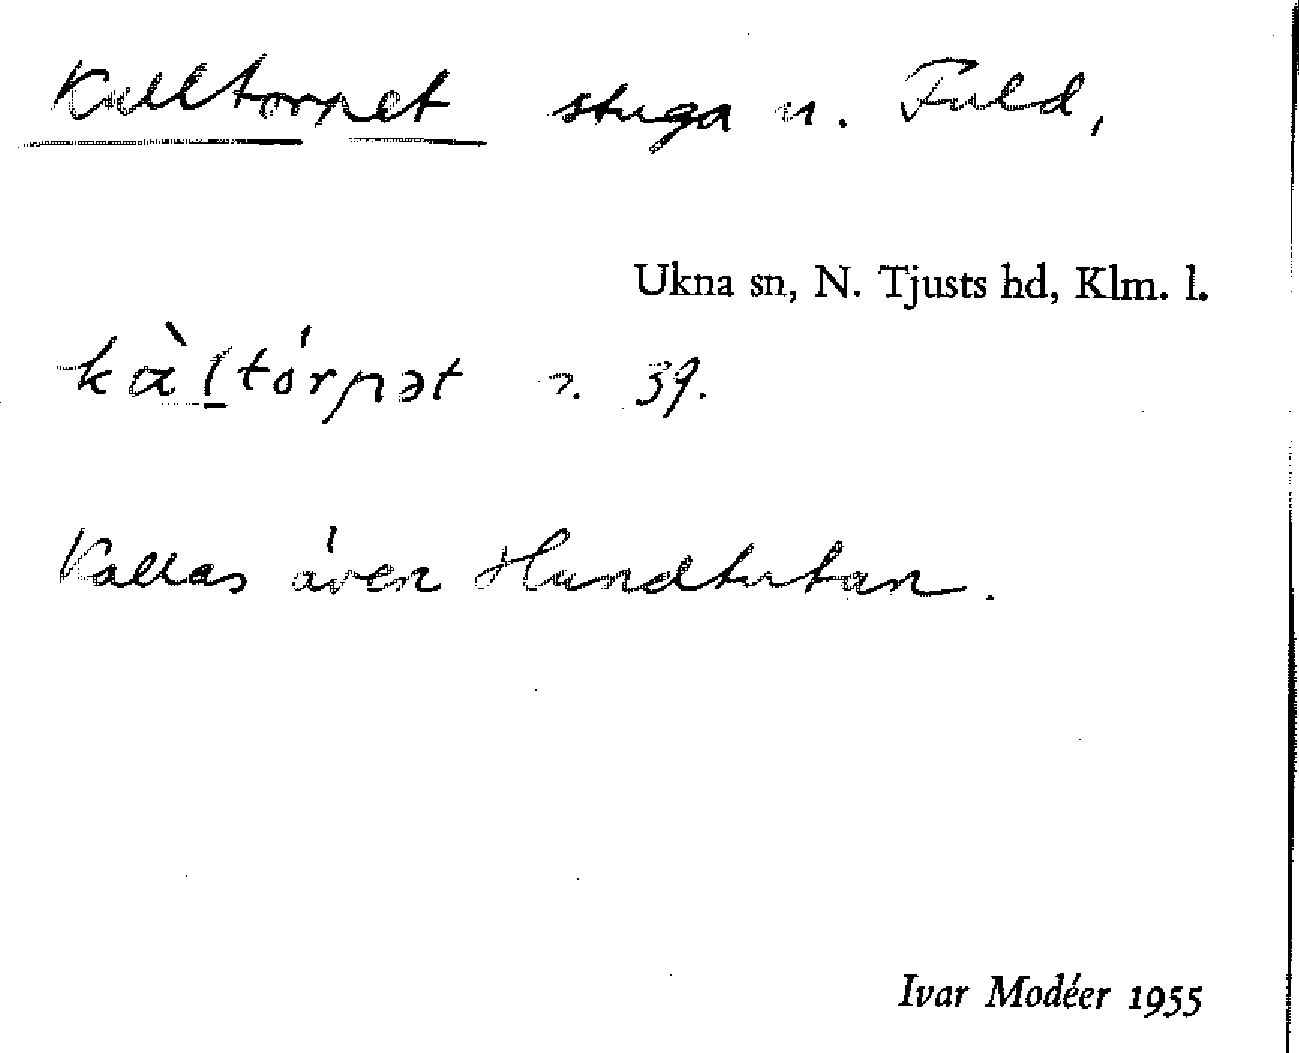 Kalltorpet stuga u. Fuld,
Ukna sn, N. Tjusts hd, Klm. l.
kàltórpət 39.
Kallas även Hundtutan.
Ivar Modéer 1955